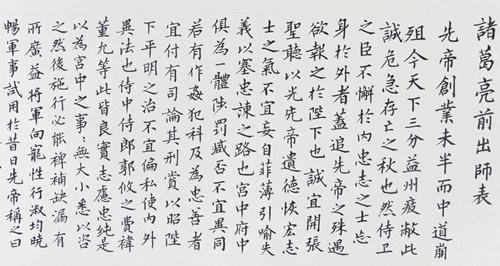 諸葛亮前出師表
先帝創業未半而中道崩
殂今天下三分益州疲敝此
誠危急存亡之秋也然侍卫
之臣不懈於内忠志之士忘
身於外者蓋追先帝之殊遇
欲報之於陛下也誠宜開張
聖聽以光先帝遺德恢宏志
士之氣不宜妄自菲薄引喻失
義以塞忠諫之路也宮中府中
俱為一體陟罰臧否不宜異同
若有作姦犯科及為忠善者
宜付有司論其刑賞以昭陛
下平明之治不宜偏私使内外
異法也侍中侍郎郭攸之費禕
董允等此皆良實志慮忠純是
以為宮中之事無大小悉以咨
之然後施行必能裨補缺漏有
所廣益將軍向寵性行淑均曉
暢軍事試用於昔日先帝稱之曰